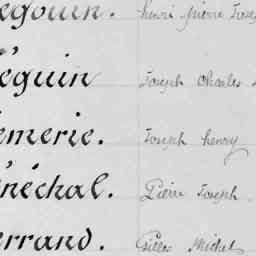 égouin. henri pierre Josep
éguin Joseph Charles
émerie. Joseph henry
énéchal. Pierre Joseph
errand. Gilles Michel